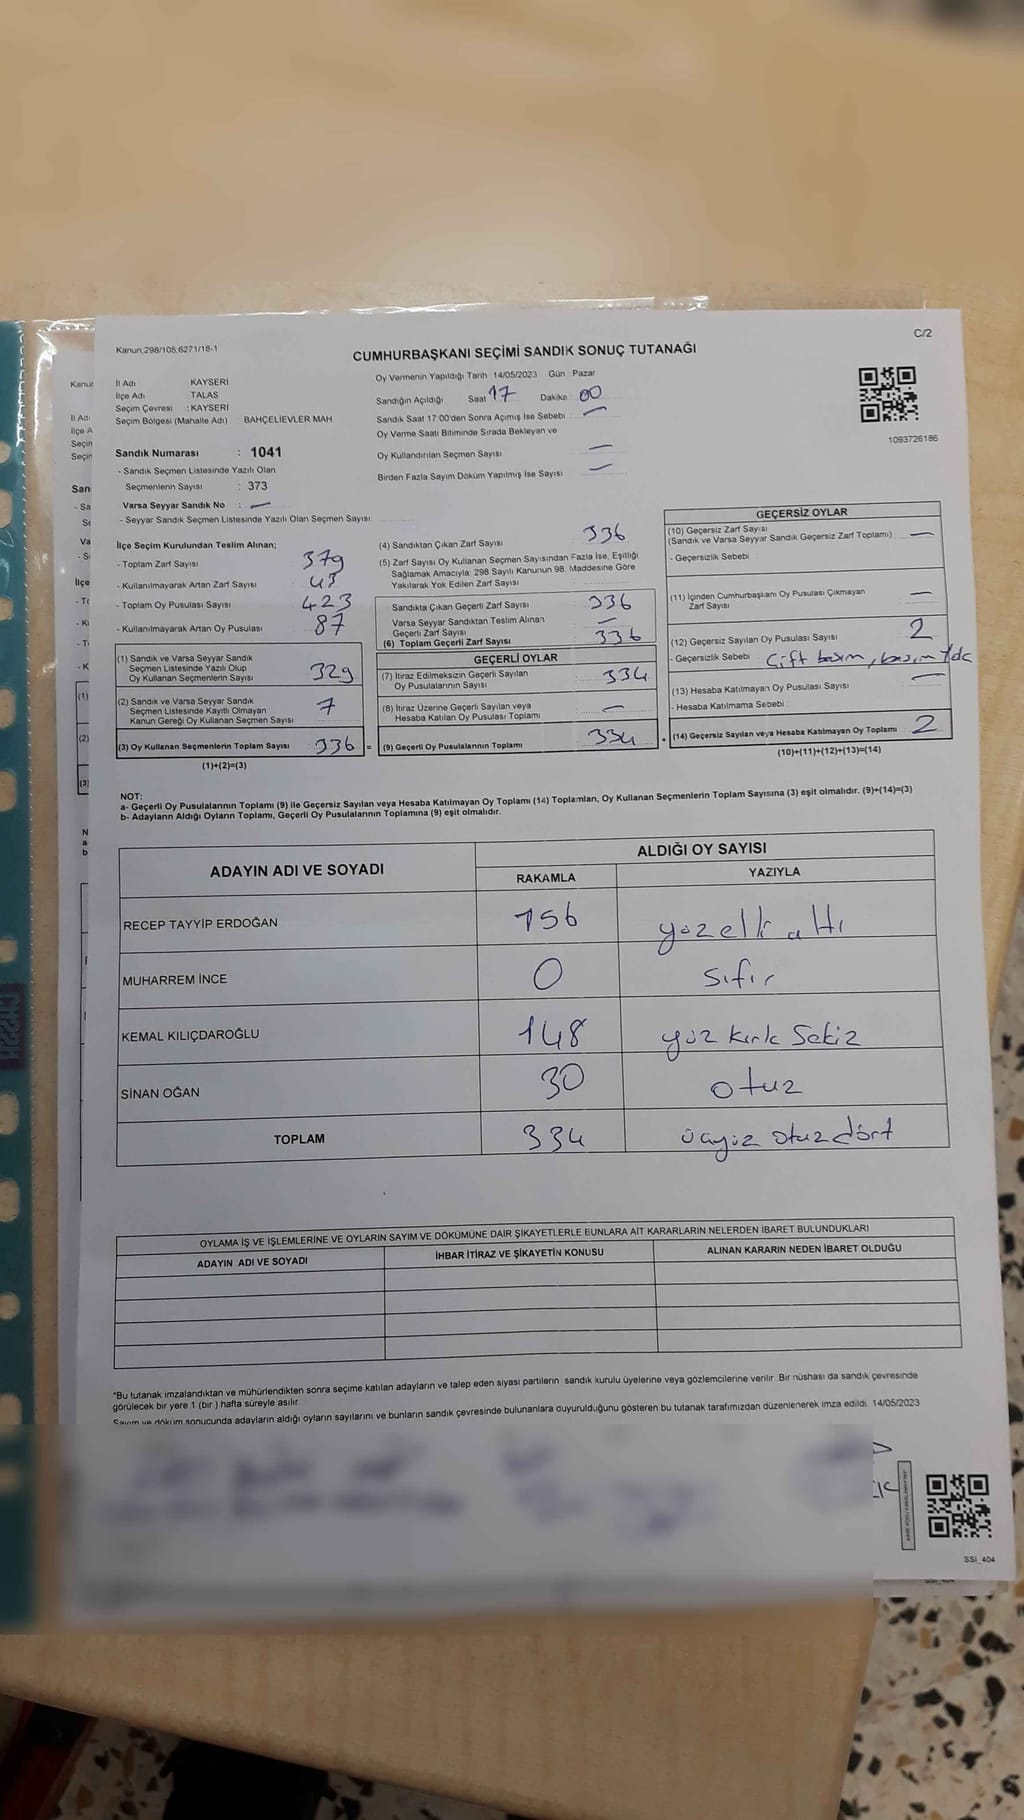 C/2
Kanun,298/105;6271/18-1
CUMHURBAŞKANI SEÇİMİ SANDIK SONUÇ TUTANAĞI
İl Adı KAYSERİ
İlçe Adı TALAS
Seçim Çevresi : KAYSERİ
Seçim Bölgesi (Mahalle Adı) BAHÇELİEVLER MAH.
Sandık Numarası : 1041
- Sandık Seçmen Listesinde Yazılı Olan
Seçmenlerin Sayısı : 373
Varsa Seyyar Sandık No : —
- Seyyar Sandık Seçmen Listesinde Yazılı Olan Seçmen Sayısı:
Oy Vermenin Yapıldığı Tarih : 14/05/2023 Gün : Pazar
Sandığın Açıldığı Saat 17 Dakika 00
Sandık Saat 17:00'den Sonra Açımış İse Sebebi : —
Oy Verme Saati Bitiminde Sırada Bekleyen ve
Oy Kullandırılan Seçmen Sayısı —
Birden Fazla Sayım Döküm Yapılmış İse Sayısı —
1093726186
İlçe Seçim Kurulundan Teslim Alınan;
- Toplam Zarf Sayısı 379
- Kullanılmayarak Artan Zarf Sayısı 43
- Toplam Oy Pusulası Sayısı 423
- Kullanılmayarak Artan Oy Pusulası 87
(1) Sandık ve Varsa Seyyar Sandık
Seçmen Listesinde Yazılı Olup
Oy Kullanan Seçmenlerin Sayısı 329
(2) Sandık ve Varsa Seyyar Sandık
Seçmen Listesinde Kayıtlı Olmayan
Kanun Gereği Oy Kullanan Seçmen Sayısı 7
(3) Oy Kullanan Seçmenlerin Toplam Sayısı 336 =
(1)+(2)=(3)
(4) Sandıktan Çıkan Zarf Sayısı 336
(5) Zarf Sayısı Oy Kullanan Seçmen Sayısından Fazla İse, Eşitliği
Sağlamak Amacıyla; 298 Sayılı Kanunun 98. Maddesine Göre
Yakılarak Yok Edilen Zarf Sayısı
Sandıkta Çıkan Geçerli Zarf Sayısı 336
Varsa Seyyar Sandıktan Teslim Alınan
Geçerli Zarf Sayısı —
(6) Toplam Geçerli Zarf Sayısı 336
GEÇERLİ OYLAR
(7) İtiraz Edilmeksizin Geçerli Sayılan
Oy Pusulalarının Sayısı 334
(8) İtiraz Üzerine Geçerli Sayılan veya
Hesaba Katılan Oy Pusulası Toplamı —
(9) Geçerli Oy Pusulalarının Toplamı 334 +
GEÇERSİZ OYLAR
(10) Geçersiz Zarf Sayısı
(Sandık ve Varsa Seyyar Sandık Geçersiz Zarf Toplamı) —
- Geçersizlik Sebebi
(11) İçinden Cumhurbaşkanı Oy Pusulası Çıkmayan
Zarf Sayısı —
(12) Geçersiz Sayılan Oy Pusulası Sayısı 2
- Geçersizlik Sebebi Çift basım, basım
(13) Hesaba Katılmayan Oy Pusulası Sayısı —
- Hesaba Katılmama Sebebi
(14) Geçersiz Sayılan veya Hesaba Katılmayan Oy Toplamı 2
(10)+(11)+(12)+(13)=(14)
NOT:
a- Geçerli Oy Pusulalarının Toplamı (9) ile Geçersiz Sayılan veya Hesaba Katılmayan Oy Toplamı (14) Toplamları, Oy Kullanan Seçmenlerin Toplam Sayısına (3) eşit olmalıdır. (9)+(14)=(3)
b- Adayların Aldığı Oyların Toplamı, Geçerli Oy Pusulalarının Toplamına (9) eşit olmalıdır.
ADAYIN ADI VE SOYADI ALDIĞI OY SAYISI
RAKAMLA YAZIYLA
RECEP TAYYİP ERDOĞAN 156 yüzelli altı
MUHARREM İNCE 0 sıfır
KEMAL KILIÇDAROĞLU 148 yüz kırk sekiz
SİNAN OĞAN 30 otuz
TOPLAM 334 üçyüz otuzdört
OYLAMA İŞ VE İŞLEMLERİNE VE OYLARIN SAYIM VE DÖKÜMÜNE DAİR ŞİKAYETLERLE BUNLARA AİT KARARLARIN NELERDEN İBARET BULUNDUKLARI
ADAYIN ADI VE SOYADI İHBAR İTİRAZ VE ŞİKAYETİN KONUSU ALINAN KARARIN NEDEN İBARET OLDUĞU
*Bu tutanak imzalandıktan ve mühürlendikten sonra seçime katılan adayların ve talep eden siyasi partilerin sandık kurulu üyelerine veya gözlemcilerine verilir. Bir nüshası da sandık çevresinde
görülecek bir yere 1 (bir ) hafta süreyle asılır.
Sayım ve döküm sonucunda adayların aldığı oyların sayılarını ve bunların sandık çevresinde bulunanlara duyurulduğunu gösteren bu tutanak tarafımızdan düzenlenerek imza edildi. 14/05/2023
SSI_404